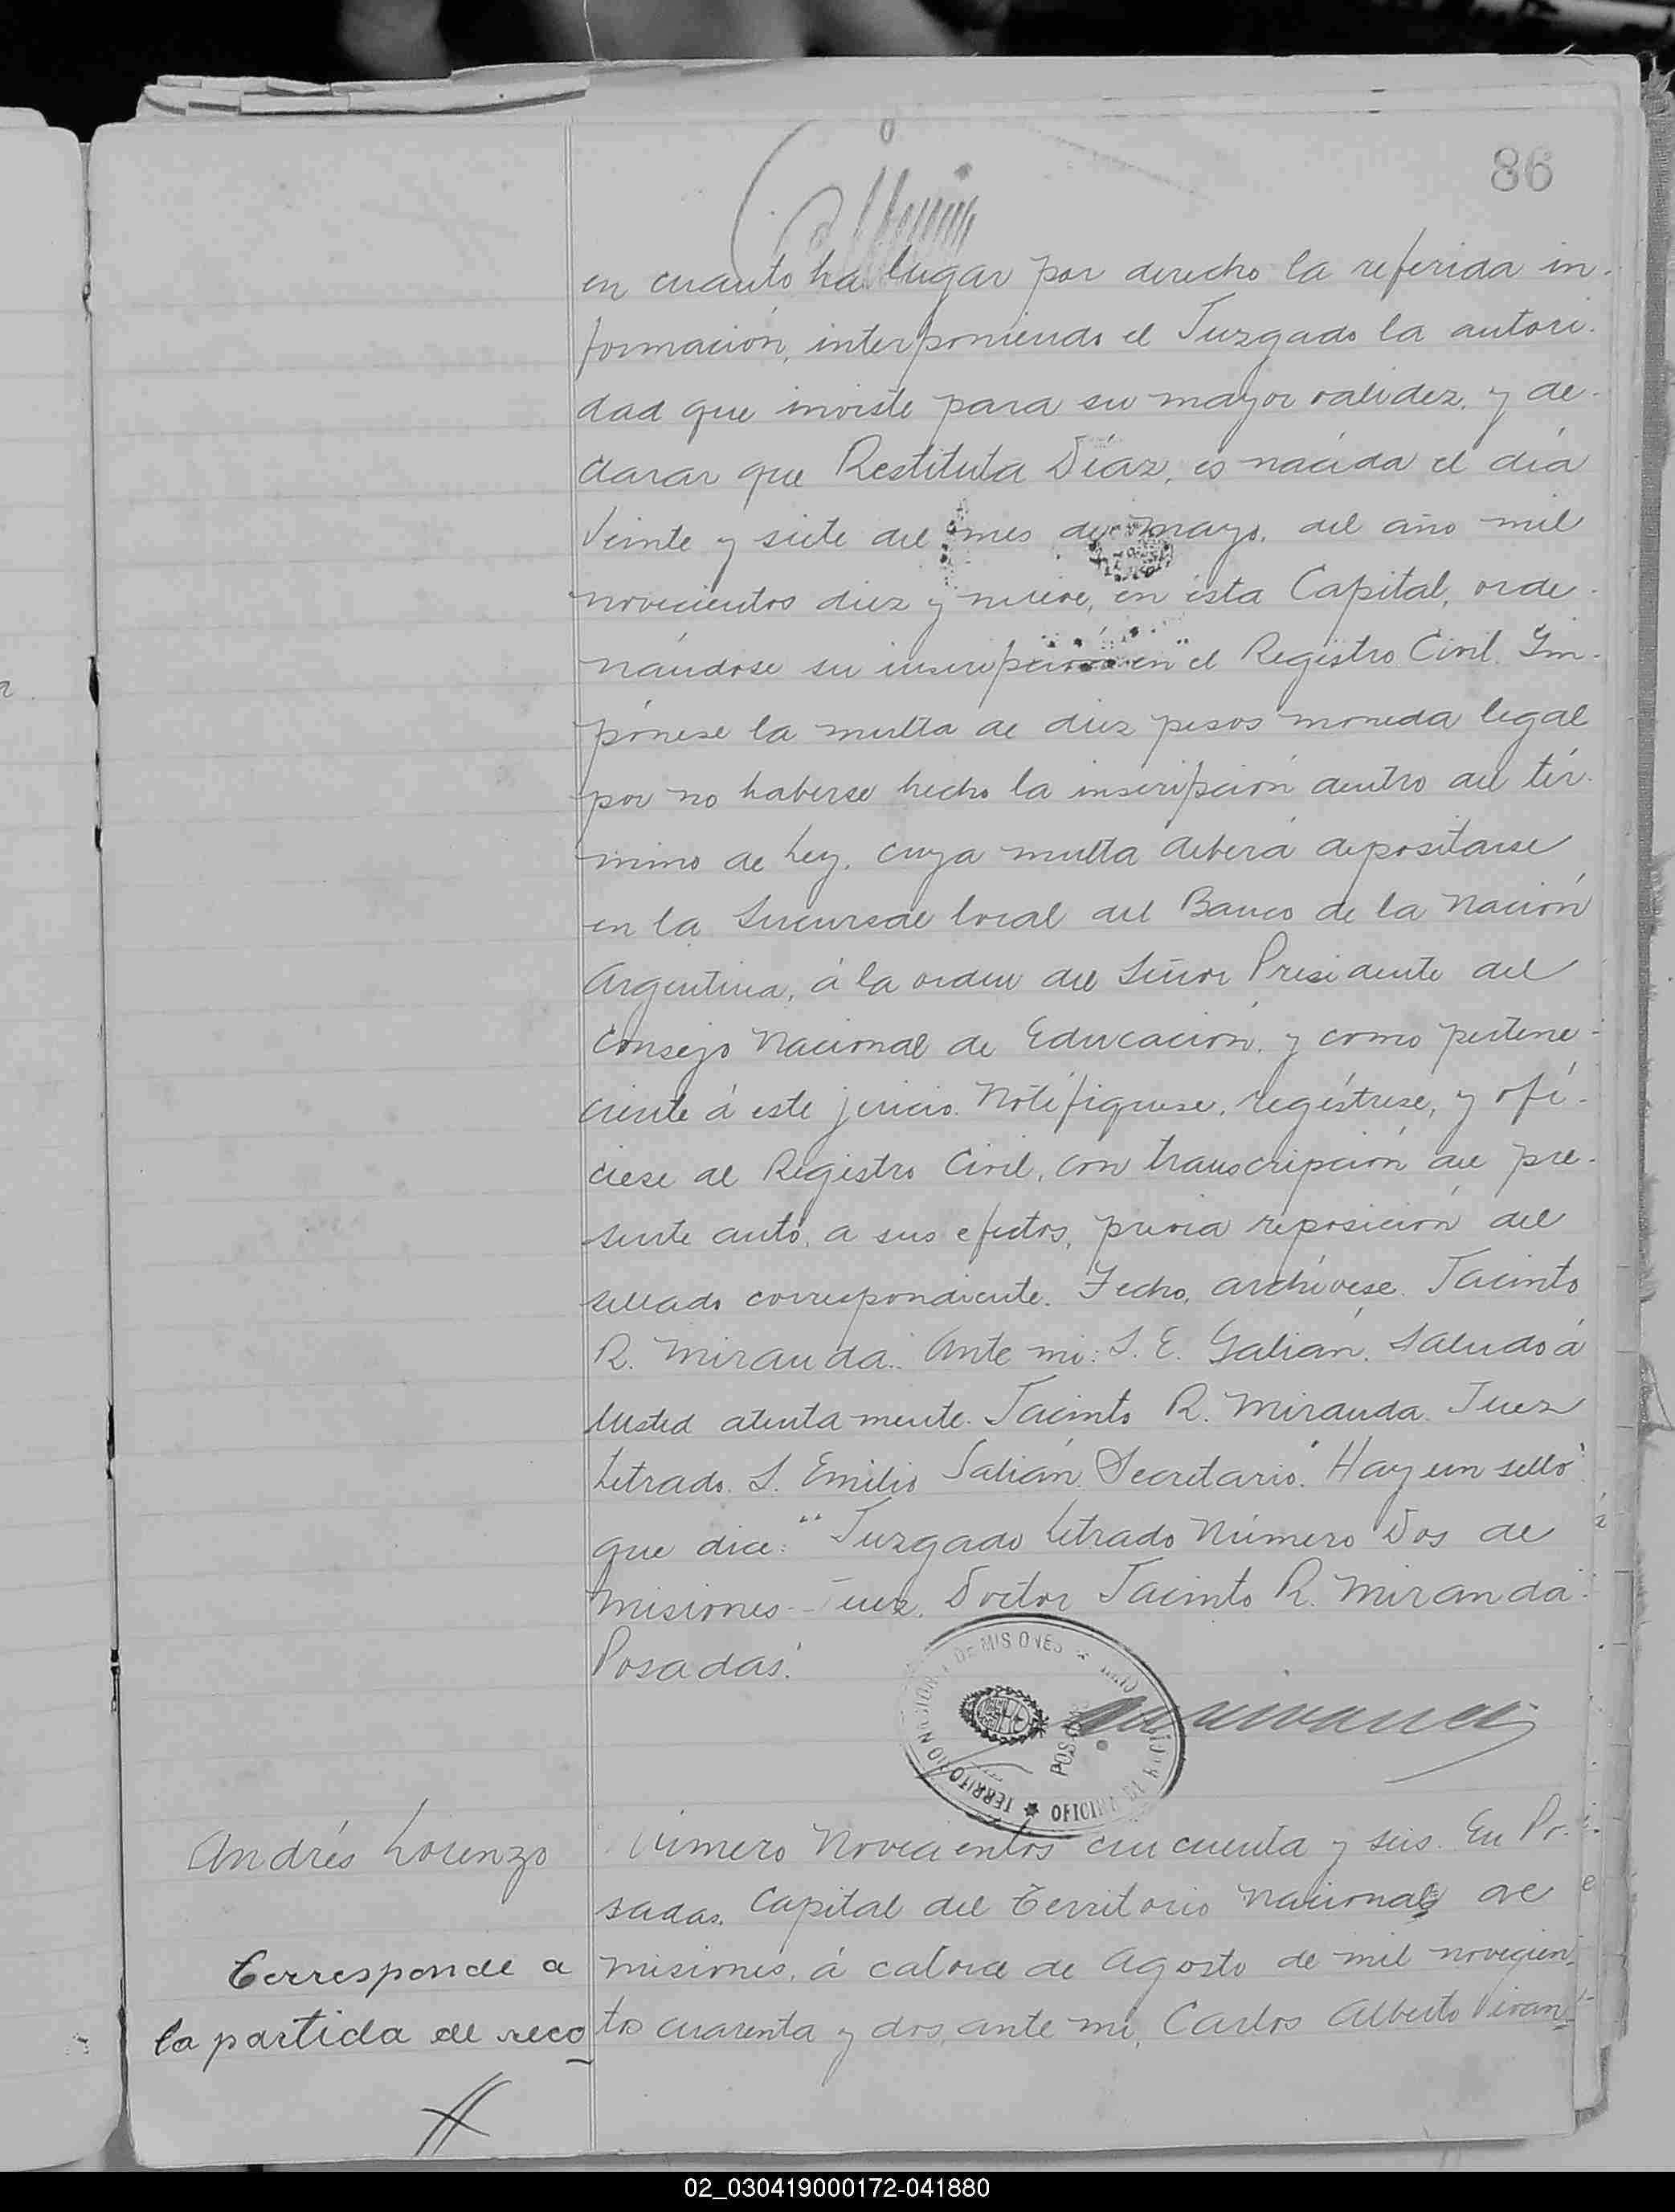 86
en cuanto ha lugar por derecho la referida in-
formación, interponiendo el Juzgado la autori-
dad que inviste para su mayor validez, y de-
clarar que Restituta Díaz, es nacida el día
veinte y siete del mes de mayo, del año mil
novecientos diez y nueve, en esta Capital, orde-
nándose su inscripción en el Registro Civil. Im-
pónese la multa de diez pesos moneda legal
por no haberse hecho la inscripción dentro del tér-
mino de Ley, cuya multa deberá depositarse
en la Sucursal local del Banco de la Nación
Argentina, á la orden del Señor Presidente del
Consejo Nacional de Educación, y como pertene-
ciente á este juicio. Notifíquese, regístrese, y ofí-
ciese al Registro Civil, con transcripción del pre-
sente auto, a sus efectos, previa reposición del
sellado correspondiente. Fecho, archívese. Jacinto
R. Miranda. Ante mi: S. E. Galián. Saludo á
Usted atentamente. Jacinto R. Miranda. Juez
Letrado. S. Emilio Galián. Secretario." Hay un sello
que dice: "Juzgado Letrado Número Dos de
Misiones - Juez. Doctor Jacinto R. Miranda.
Posadas."
TERRITORIO NACIONAL DE MISIONES
POSADAS
OFICINA
Andrés Lorenzo
Corresponde a
la partida de reco
Número Novecientos cincuenta y seis. En Po-
sadas, Capital del Territorio Nacional de
Misiones, á catorce de Agosto de mil novecien-
tos cuarenta y dos, ante mi, Carlos Alberto Vivan-
02_030419000172-041880